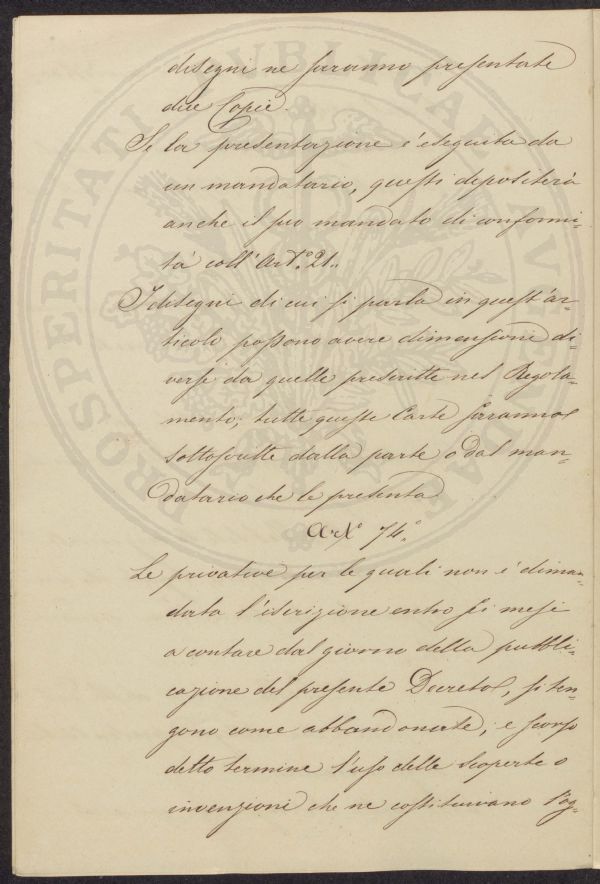 disegni ne saranno presentate
due Copie.
Se la presentazione è eseguita da
un mandatario, questi depositerà
anche il suo mandato di conformi-
tà coll'Art.° 21.
I disegni di cui si parla in quest'ar-
ticolo possono avere dimensioni di-
verse da quelle prescritte nel Regola-
mento; tutte queste Carte saranno
sottoscritte dalla parte o dal man-
datario che le presenta
Art.° 74.°
Le privative per le quali non è diman-
data l'iscrizione entro sei mesi
a contare dal giorno della pubbli-
cazione del presente Decreto, si ten-
gono come abbandonate; e scorso
detto termine l'uso delle scoperte o
invenzioni che ne costituivano l'og-
PROSPERITATI PUBLICAE AUGENDAE